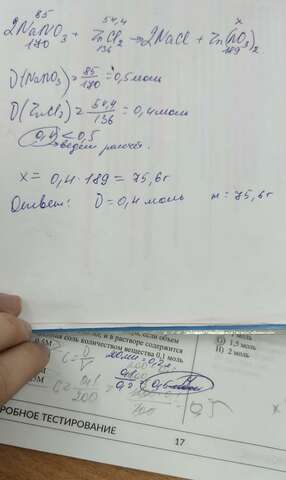 85 54,4 x
2NaNO3 + ZnCl2 → 2NaCl + Zn(NO3)2
170 136 189
υ(NaNO3) = 85/170 = 0,5 моль
υ(ZnCl2) = 54,4/136 = 0,4 моль
0,4 < 0,5
ведём расчёт.
x = 0,4 · 189 = 75,6 г
Ответ: υ = 0,4 моль m = 75,6 г
, и в растворе содержится
ная соль количеством вещества 0,1 моль
G) 1,5 моль
H) 2 моль
200 мл = 0,2 л
C = υ/V
C = 0,1
200
x
РОБНОЕ ТЕСТИРОВАНИЕ
17